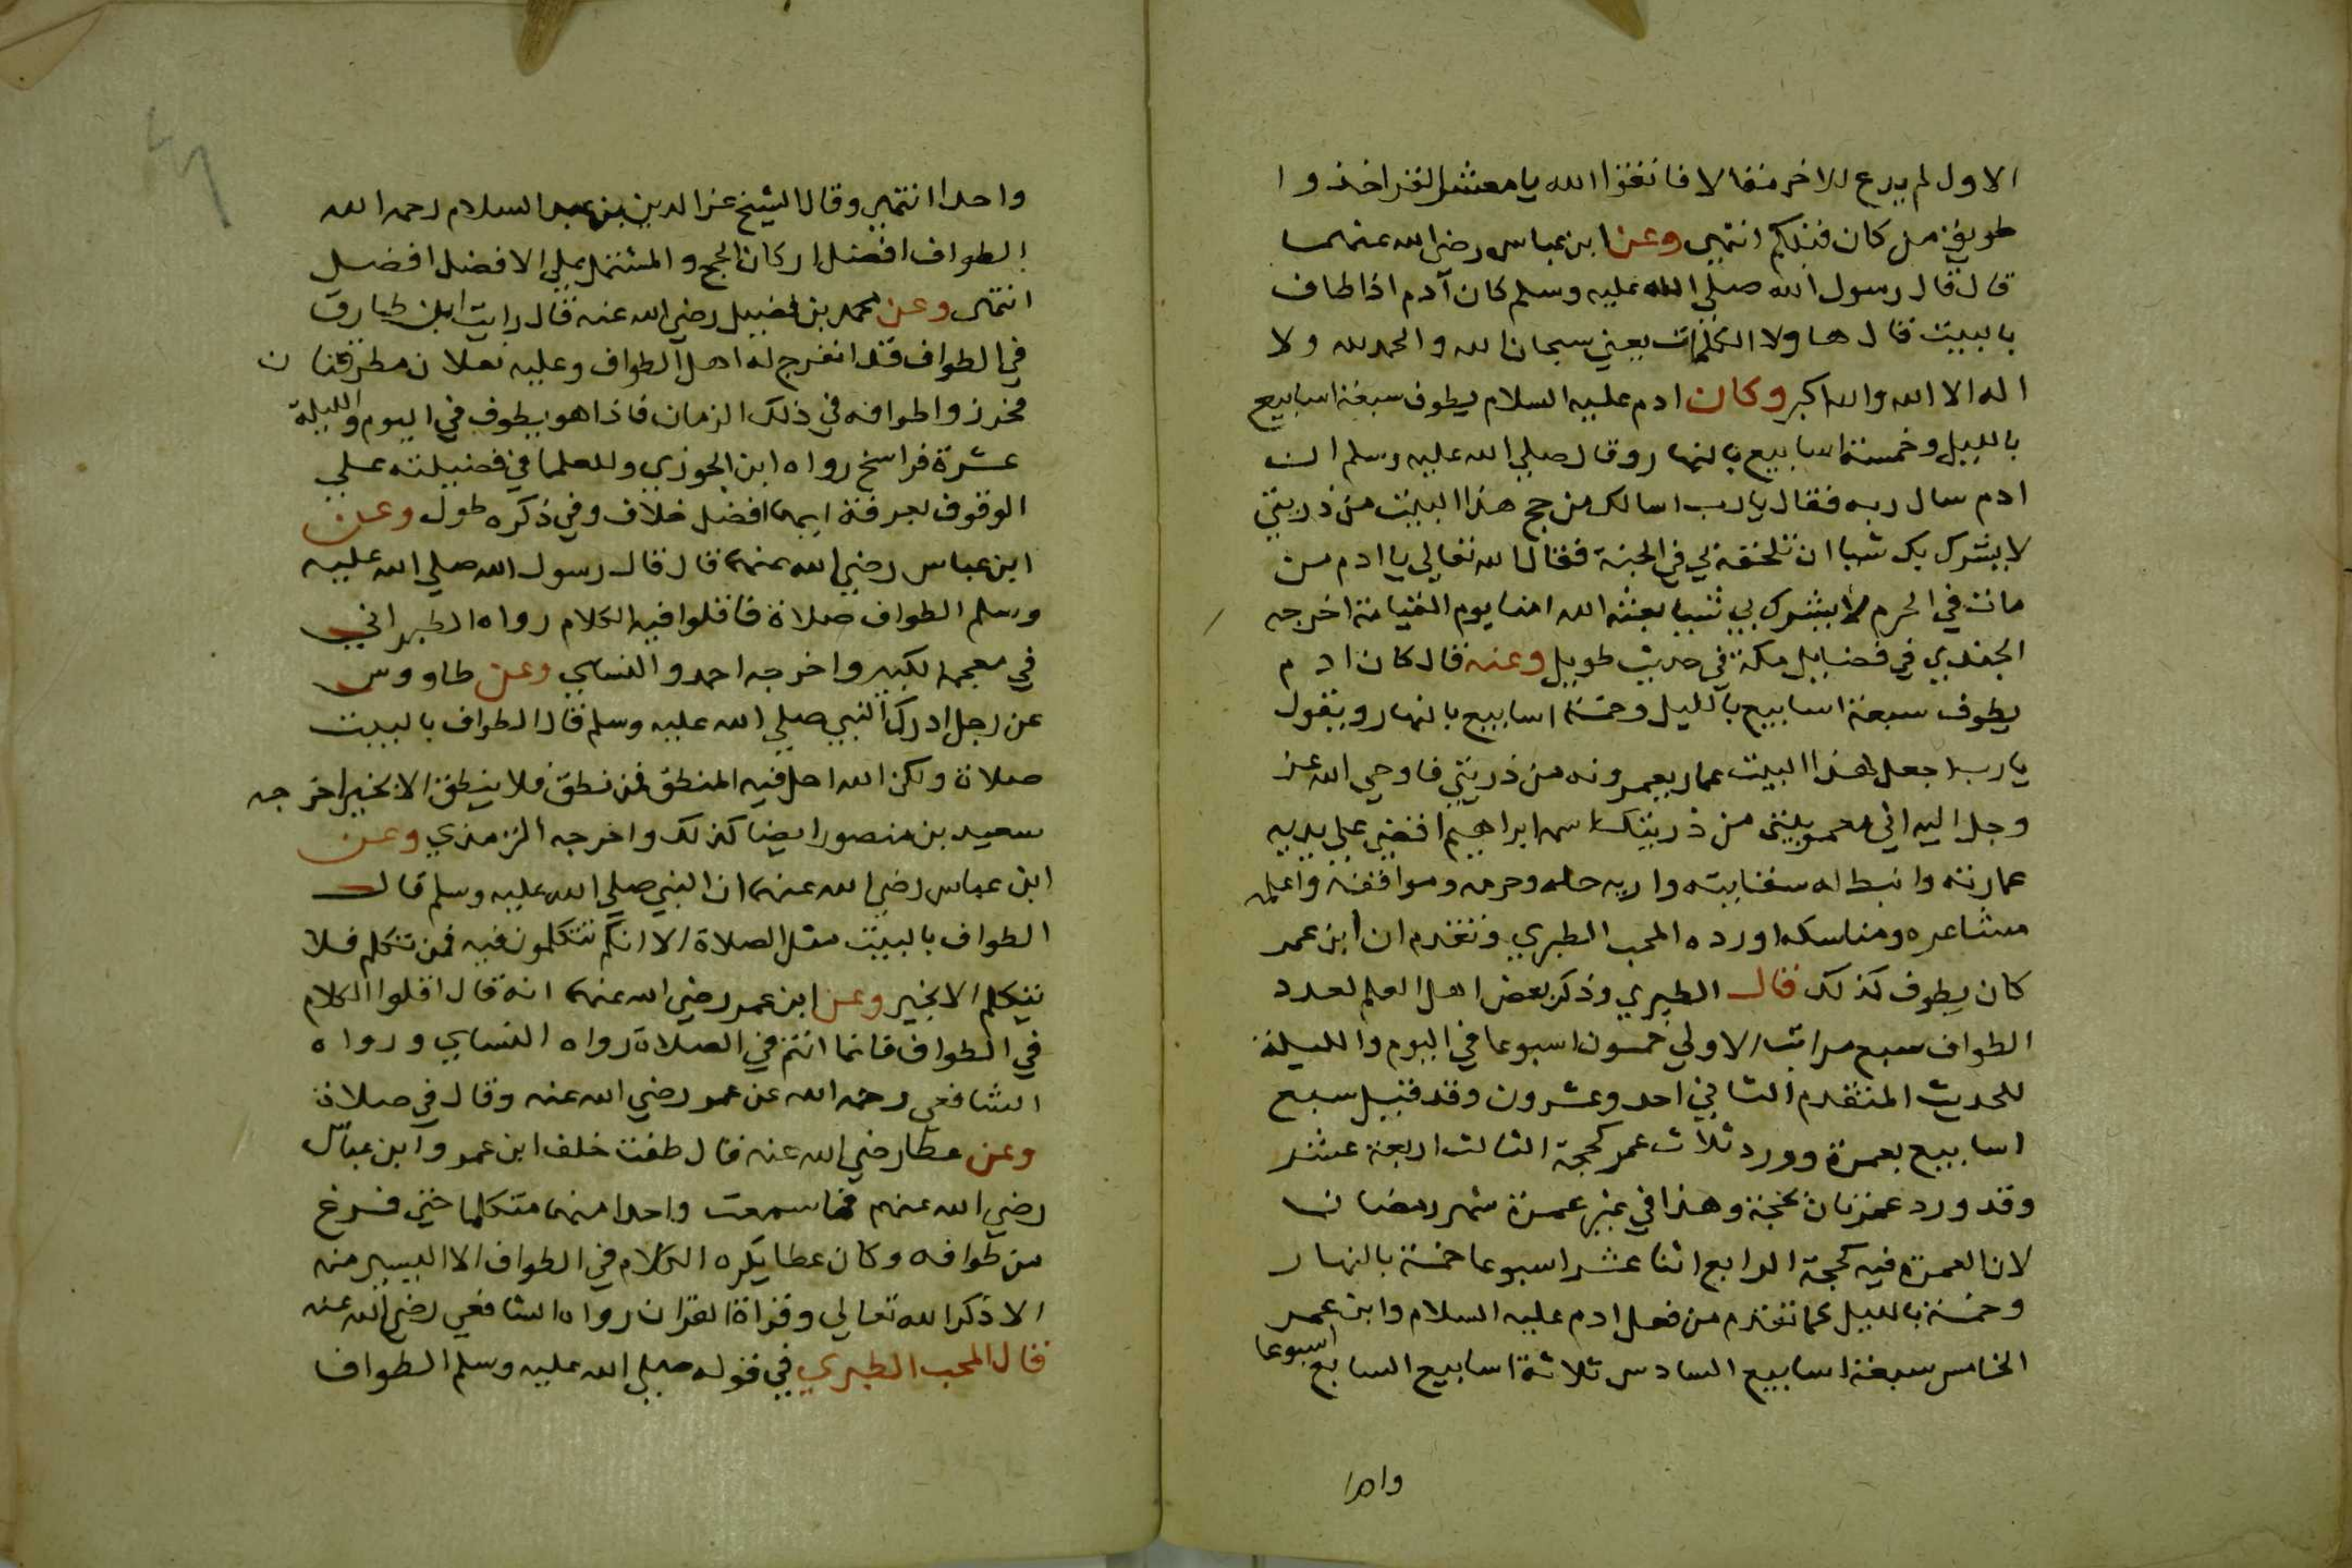 الاول لم يدع للاخر مقالا فاتقوا الله يا معشر القراخذوا
طريق من كان قبلكم انتهي وعن ابن عباس رضي الله عنهما
قال قال رسول الله صلي الله عليه وسلم كان آدم اذا طاف
بالبيت قال هاولا الكلمات يعني سبحان الله والحمد لله ولا
اله الا الله والله اكبر وكان ادم عليه السلام يطوف سبعة اسابيع
بالليل وخمسة اسابيع بالنهار وقال صلي الله عليه وسلم ان
ادم سال ربه فقال يا رب اسالك من حج هذا البيت من ذريتي
لا يشرك بك شيا ان تلحقه بي في الجنة فقال الله تعالي يا ادم من
مات في الحرم لا يشرك بي شيا بعثته الله امنا يوم القيامة اخرجه
الجندي في فضايل مكة في حديث طويل وعنه قال كان ادم
يطوف سبعة اسابيع بالليل وخمسة اسابيع بالنهار ويقول
يا رب اجعل لهذا البيت عمار يعمرونه من ذريتي فاوحي الله عز
وجل اليه اني معمر بيتي من ذريتك اسمه ابراهيم اقضي علي يديه
عمارته وانبط له سقايته واريه حله وحرمه ومواقفه واعلمه
مشاعره ومناسكه اورده المحب الطبري وتقدم ان ابن عمر
كان يطوف كذلك قال الطبري وذكر بعض اهل العلم لعدد
الطواف سبع مراتب الاولي خمسون اسبوعا في اليوم والليلة
للحديث المتقدم الثاني احد وعشرون وقد قيل سبع
اسابيع بعمرة وورد ثلاث عمر كحجة الثالث اربعة عشر
وقد ورد عمرتان بحجة وهذا في غير عمرة شهر رمضان
لان العمرة فيه كحجة الرابع اثنا عشر اسبوعا خمسة بالنهار
وخمسة بالليل كما تقدم من فعل ادم عليه السلام وابن عمر
الخامس سبعة اسابيع السادس ثلاثة اسابيع السابع اسبوعا
واحدا
واحدا انتهي وقال الشيخ عز الدين بن عبد السلام رحمه الله
الطواف افضل اركان الحج والمشتمل علي الافضل افضل
انتهي وعن محمد بن فضيل رضي الله عنه قال رايت ابن طارق
في الطواف قد انفرج له اهل الطواف وعليه نعلان مطرقتان
فحرزوا طوافه في ذلك الزمان فاذا هو يطوف في اليوم والليلة
عشرة فراسخ رواه ابن الجوزي وللعلما في فضيلته علي
الوقوف بعرفة ايهما افضل خلاف وفي ذكره طول وعن
ابن عباس رضي الله عنهما قال قال رسول الله صلي الله عليه
وسلم الطواف صلاة فاقلوا فيه الكلام رواه الطبراني
في معجمه الكبير واخرجه احمد والنساي وعن طاووس
عن رجل ادرك النبي صلي الله عليه وسلم قال الطواف بالبيت
صلاة ولكن الله احل فيه المنطق فمن نطق فلا ينطق الا بخير اخرجه
سعيد بن منصور ايضا كذلك واخرجه الترمذي وعن
ابن عباس رضي الله عنهما ان النبي صلي الله عليه وسلم قال
الطواف بالبيت مثل الصلاة الا انكم تتكلمون فيه فمن تكلم فلا
يتكلم الا بخير وعن ابن عمر رضي الله عنهما انه قال اقلوا الكلام
في الطواف فانما انتم في الصلاة رواه النساي ورواه
الشافعي رحمه الله عن عمر رضي الله عنه وقال في صلاة
وعن عطا رضي الله عنه قال طفت خلف ابن عمر وابن عباس
رضي الله عنهم فما سمعت واحدا منهما متكلما حتي فرغ
من طوافه وكان عطا يكره الكلام في الطواف الا اليسير منه
الا ذكر الله تعالي وقراة القران رواه الشافعي رضي الله عنه
قال المحب الطبري في قوله صلي الله عليه وسلم الطواف